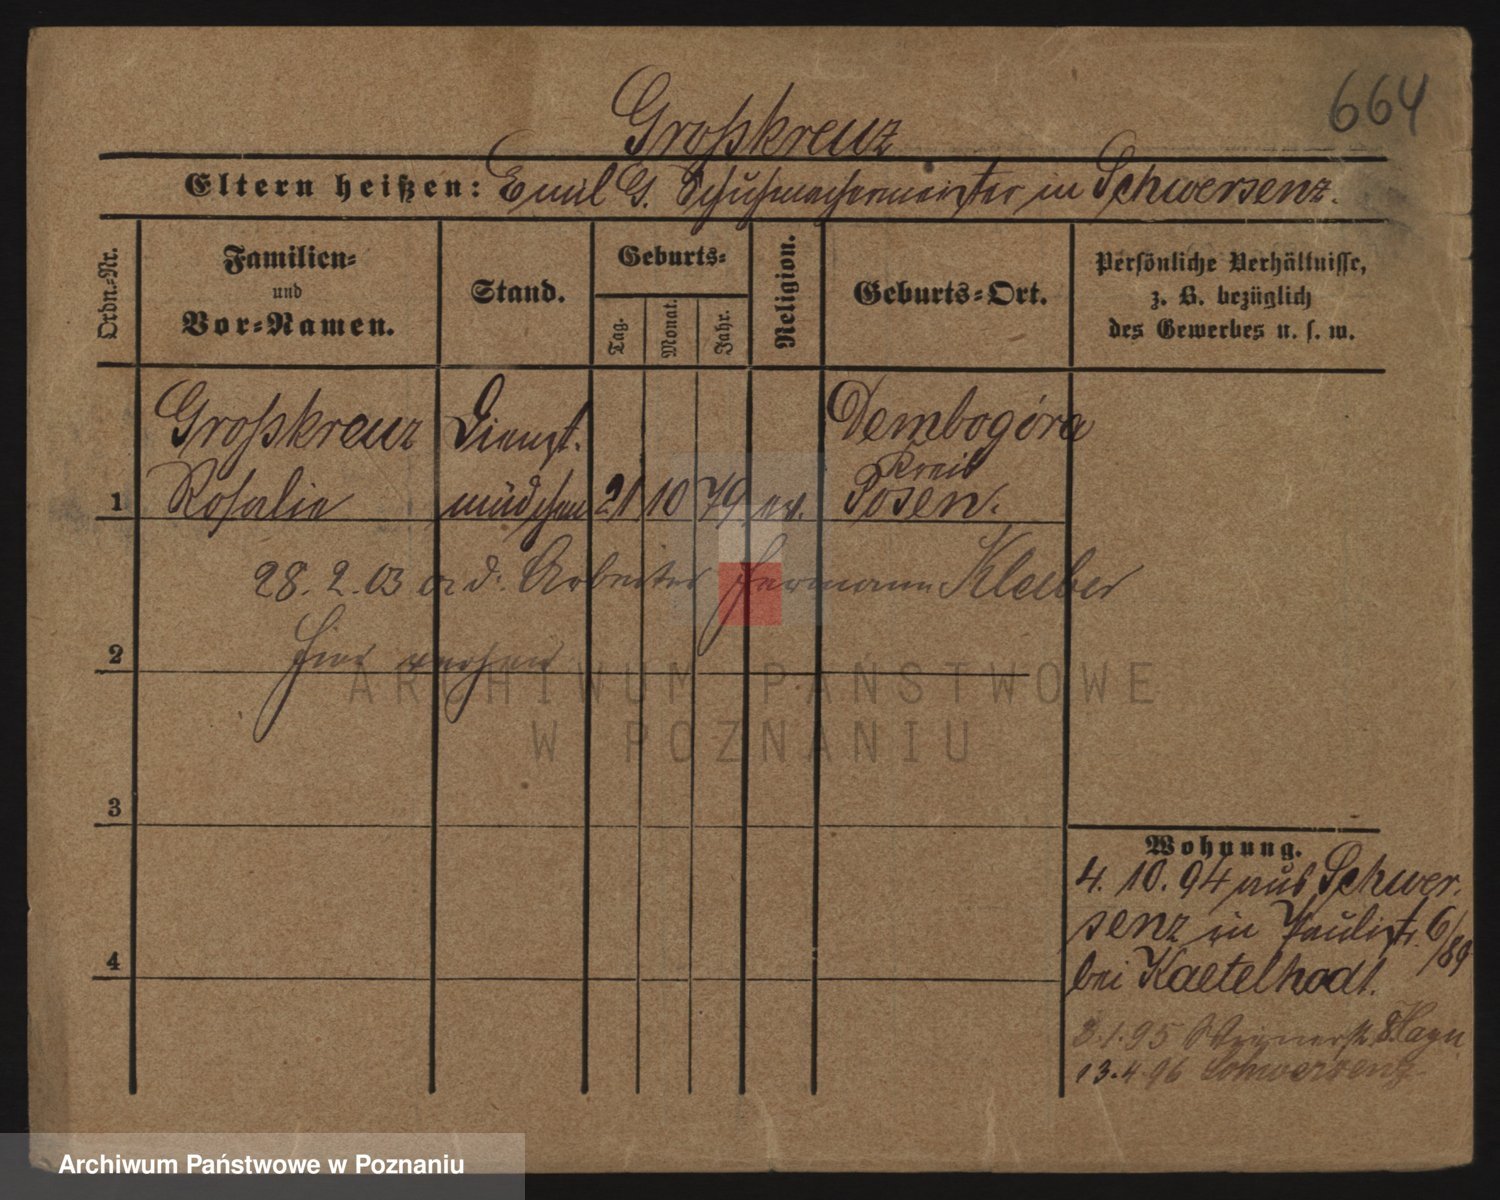 664
Großkreuz
Eltern heißen: Emil G. Schuhmachermeister in Schwersenz.
Ordn.-Nr.
Familien-
und
Vor-Namen.
Stand.
Geburts-
Tag.
Monat.
Jahr.
Religion.
Geburts-Ort.
Persönliche Verhältnisse,
z. B. bezüglich
des Gewerbes u. s. w.
Großkreuz Dienst- Dembogóra
Kreis
1 Rosalie mädchen 21 10 79 ev. Posen.
28. 2. 03 a. d. Arbeiter Hermann Kleeber
2
3
4
Wohnung.
4. 10. 94 aus Schwer-
senz in Paulistr. 6/89
bei Kaetelhodt.
3.1.95
13.4.96 Schwersenz
ARCHIWUM PAŃSTWOWE
W POZNANIU
Archiwum Państwowe w Poznaniu